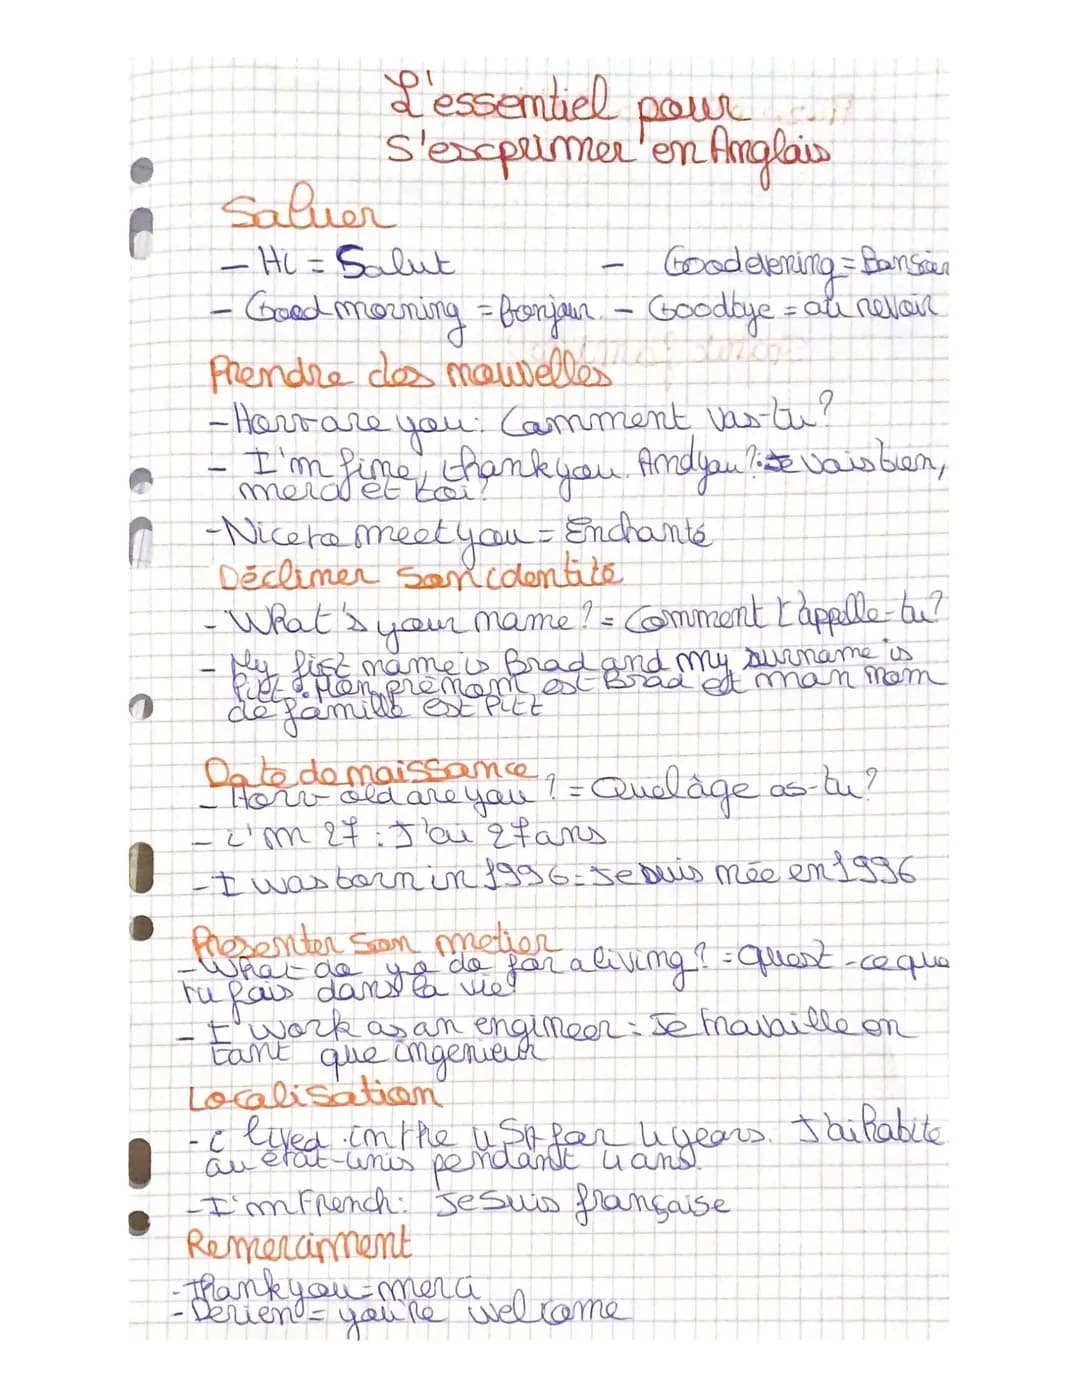 L'essentiel pour
s'exprimer en Anglais
Saluer
- Hi = Salut - Good evening = Bonsoir
- Good morning = Bonjour - Goodbye = au revoir
Prendre des nouvelles
- How are you : Comment vas-tu ?
- I'm fine, thank you. And you ? : Je vais bien,
merci et toi ?
- Nice to meet you = Enchanté
Décliner son identité
- What's your name ? = Comment t'appelle-tu ?
- My fist name is Brad and my surname is
Pitt : Mon prénom est Brad et mon nom
de famille est Pitt
Date de naissance
- How old are you ? = Quel âge as-tu ?
- i'm 27 : J'ai 27 ans
- I was born in 1996 = Je suis née en 1996
Presenter son metier
- What do yo do for a living ? = quest-ce que
tu fais dans la vie ?
- I work as an engineer : Je travaille en
tant que ingenieur
Localisation
- i lived in the USA for 4 years. J'ai habité
au état-unis pendant 4 ans.
- I'm French : Je suis française
Remerciment
- Thank you = merci
- Derien = you're welcome